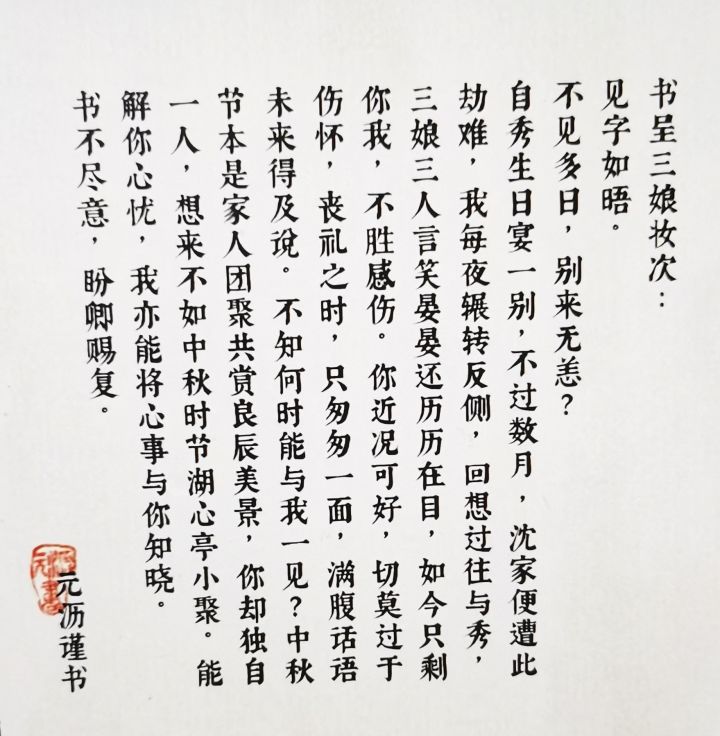 书呈三娘妆次：
见字如晤。
不见多日，别来无恙？
自秀生日宴一别，不过数月，沈家便遭此
劫难，我每夜辗转反侧，回想过往与秀，
三娘三人言笑晏晏还历历在目，如今只剩
你我，不胜感伤。你近况可好，切莫过于
伤怀，丧礼之时，只匆匆一面，满腹话语
未来得及说。不知何时能与我一见？中秋
节本是家人团聚共赏良辰美景，你却独自
一人，想来不如中秋时节湖心亭小聚。能
解你心忧，我亦能将心事与你知晓。
书不尽意，盼卿赐复。
元沥谨书